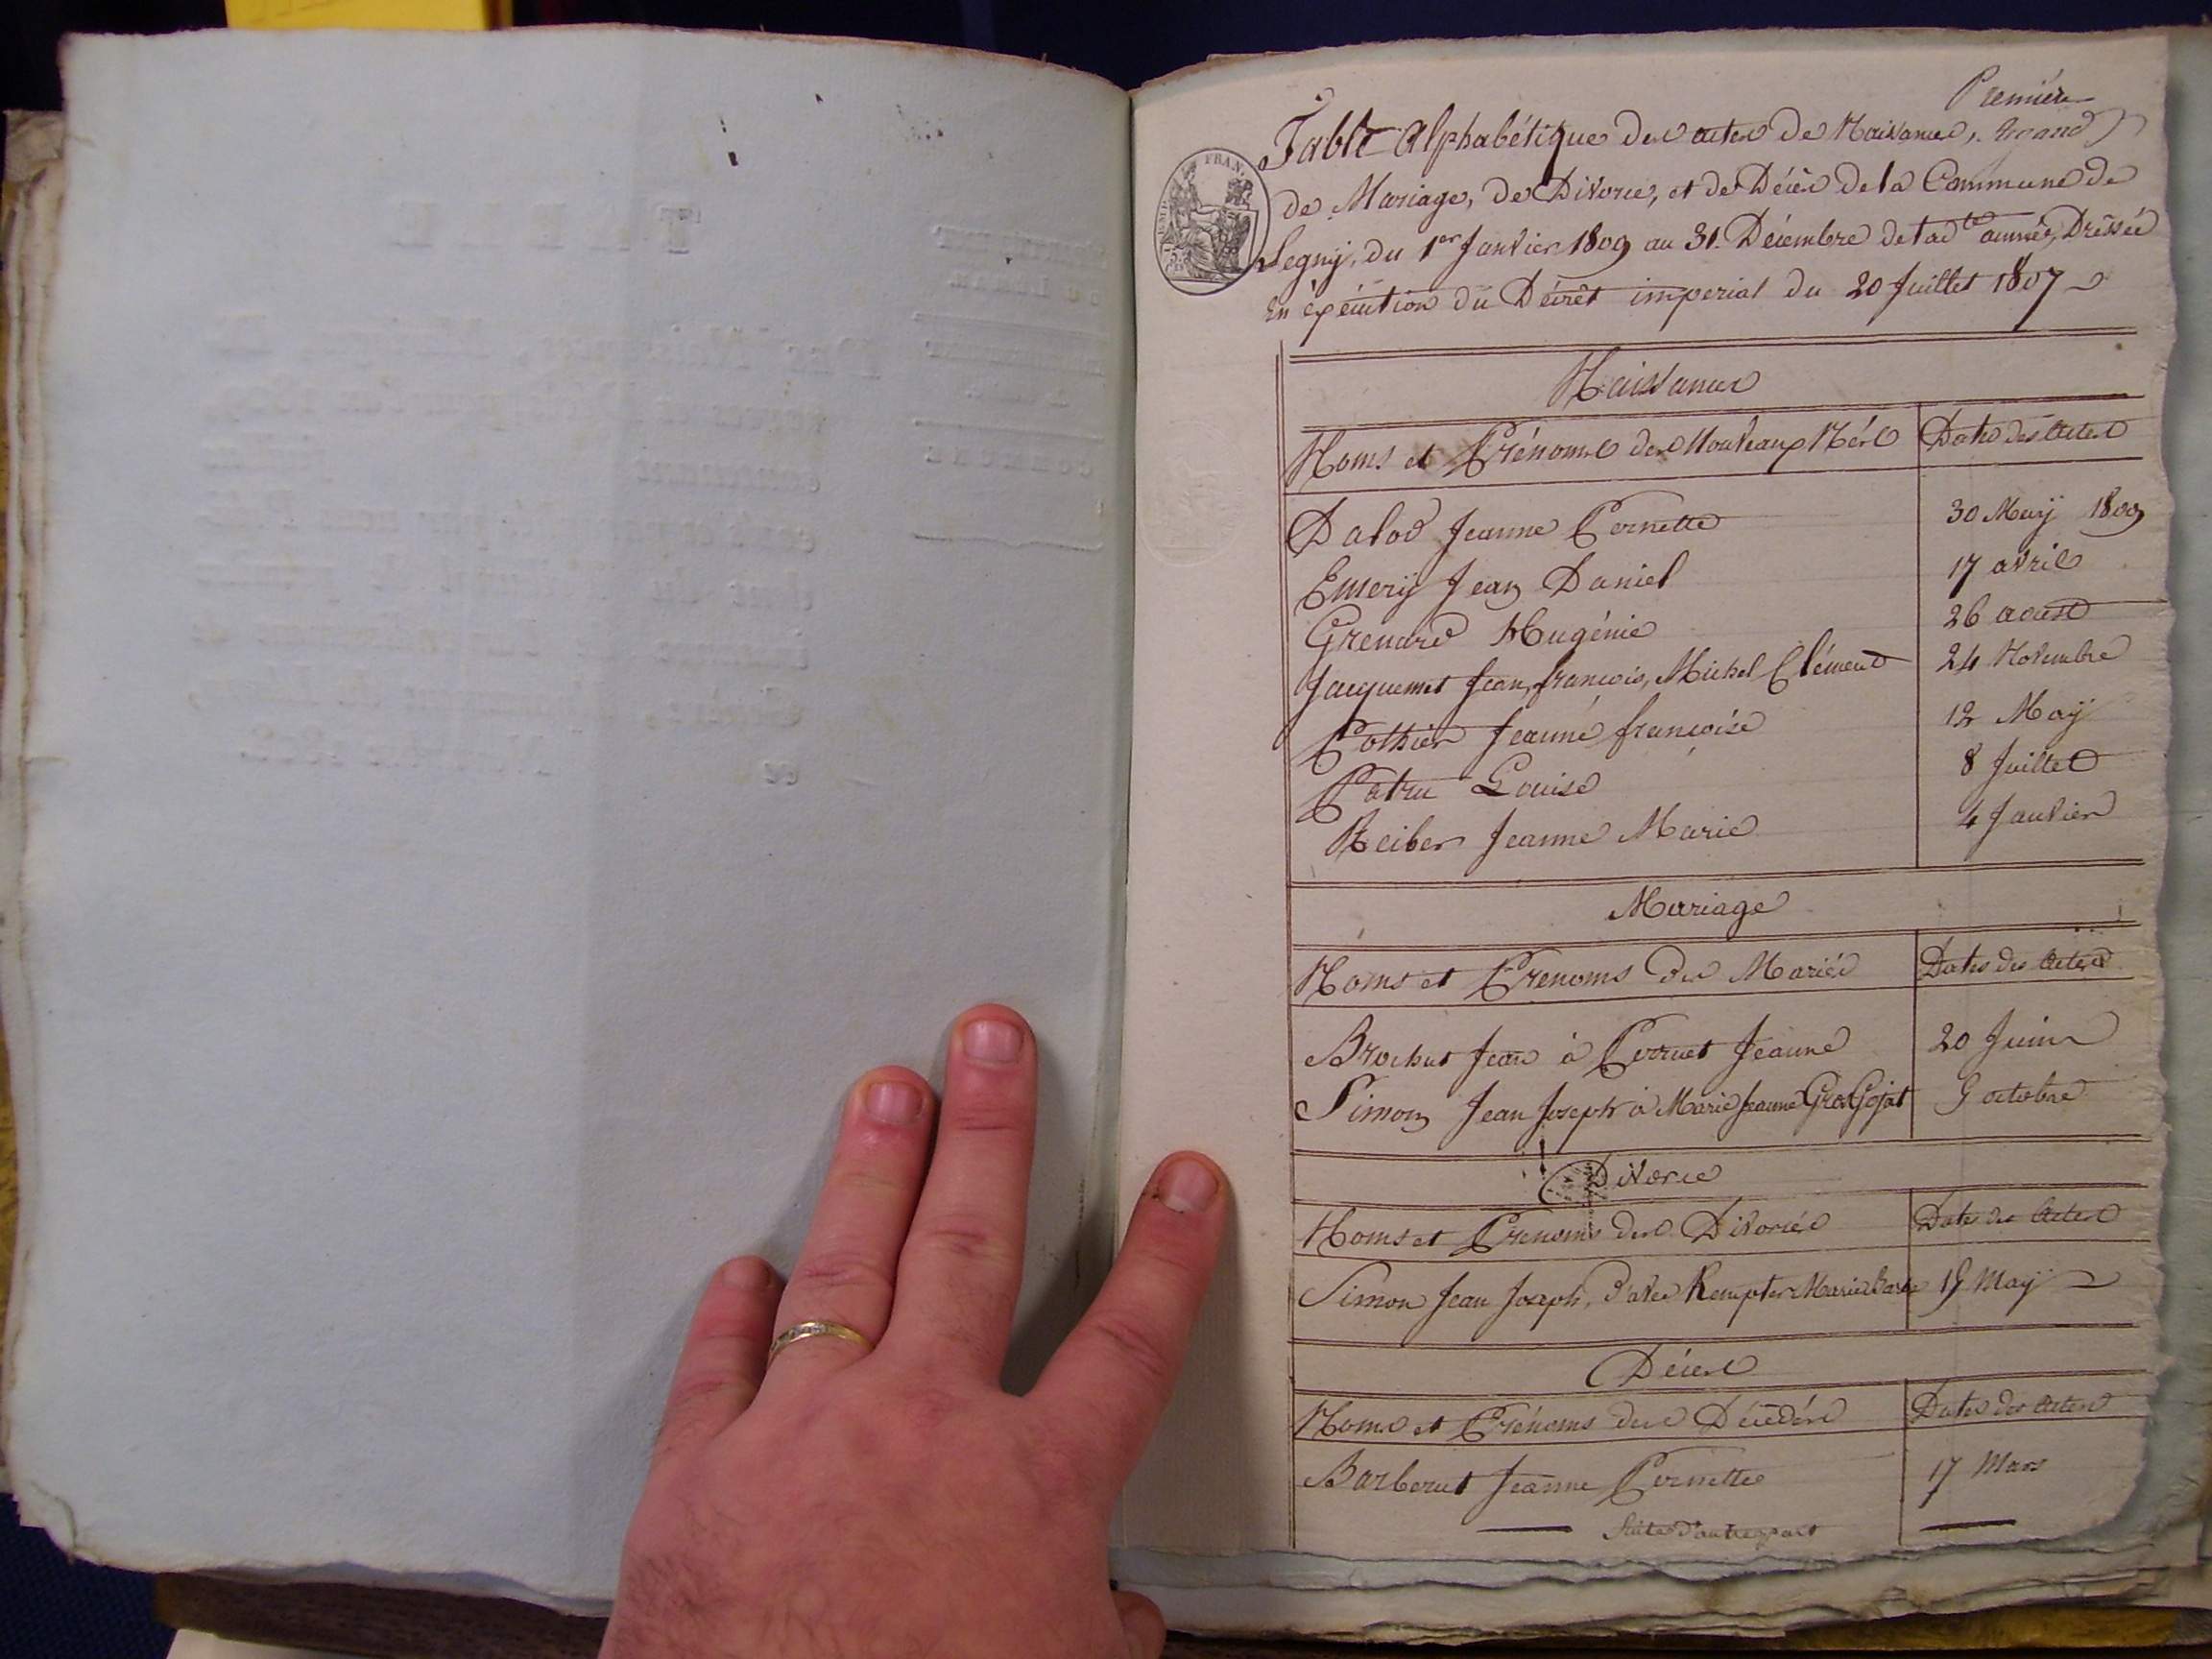 Première
Table Alphabétique des actes de Naissances,
de Mariage, de Divorce, et de Décès de la Commune de
Segny, du 1er Janvier 1809 au 31. Décembre de lad.te année, Dressée
en éxécution du Décrêt imperial du 20 Juillet 1807
FRAN.
Naissances
Noms et Prénoms des Nouveaux Nés Dates des Actes
Dalod Jeanne Pernette 30 Maÿ 1809
Emerÿ Jean Daniel 17 avril
Grenard Hugénie 26 aoust
Jacquemet Jean, françois, Michel Clément 24 Novembre
Pothier Jeanne françoise 12 Maÿ
Patru Louise 8 Juillet
Reiber Jeanne Marie 4 Janvier
Mariage
Noms et Prenoms des Mariés Dates des Actes
Brochut Jean à Perruet Jeanne 20 Juin
Simon Jean Joseph à Marie Jeanne GrosGojat 9 octobre
Divorce
Noms et Prenoms des Divorcés Dates des Actes
Simon Jean Joseph, d'avec Kempter Marie Barbe 19 Maÿ
Décès
Noms et Prénoms des Décédés Dates des Actes
Barberut Jeanne Pernette 17 Mars
Suite d'autre part